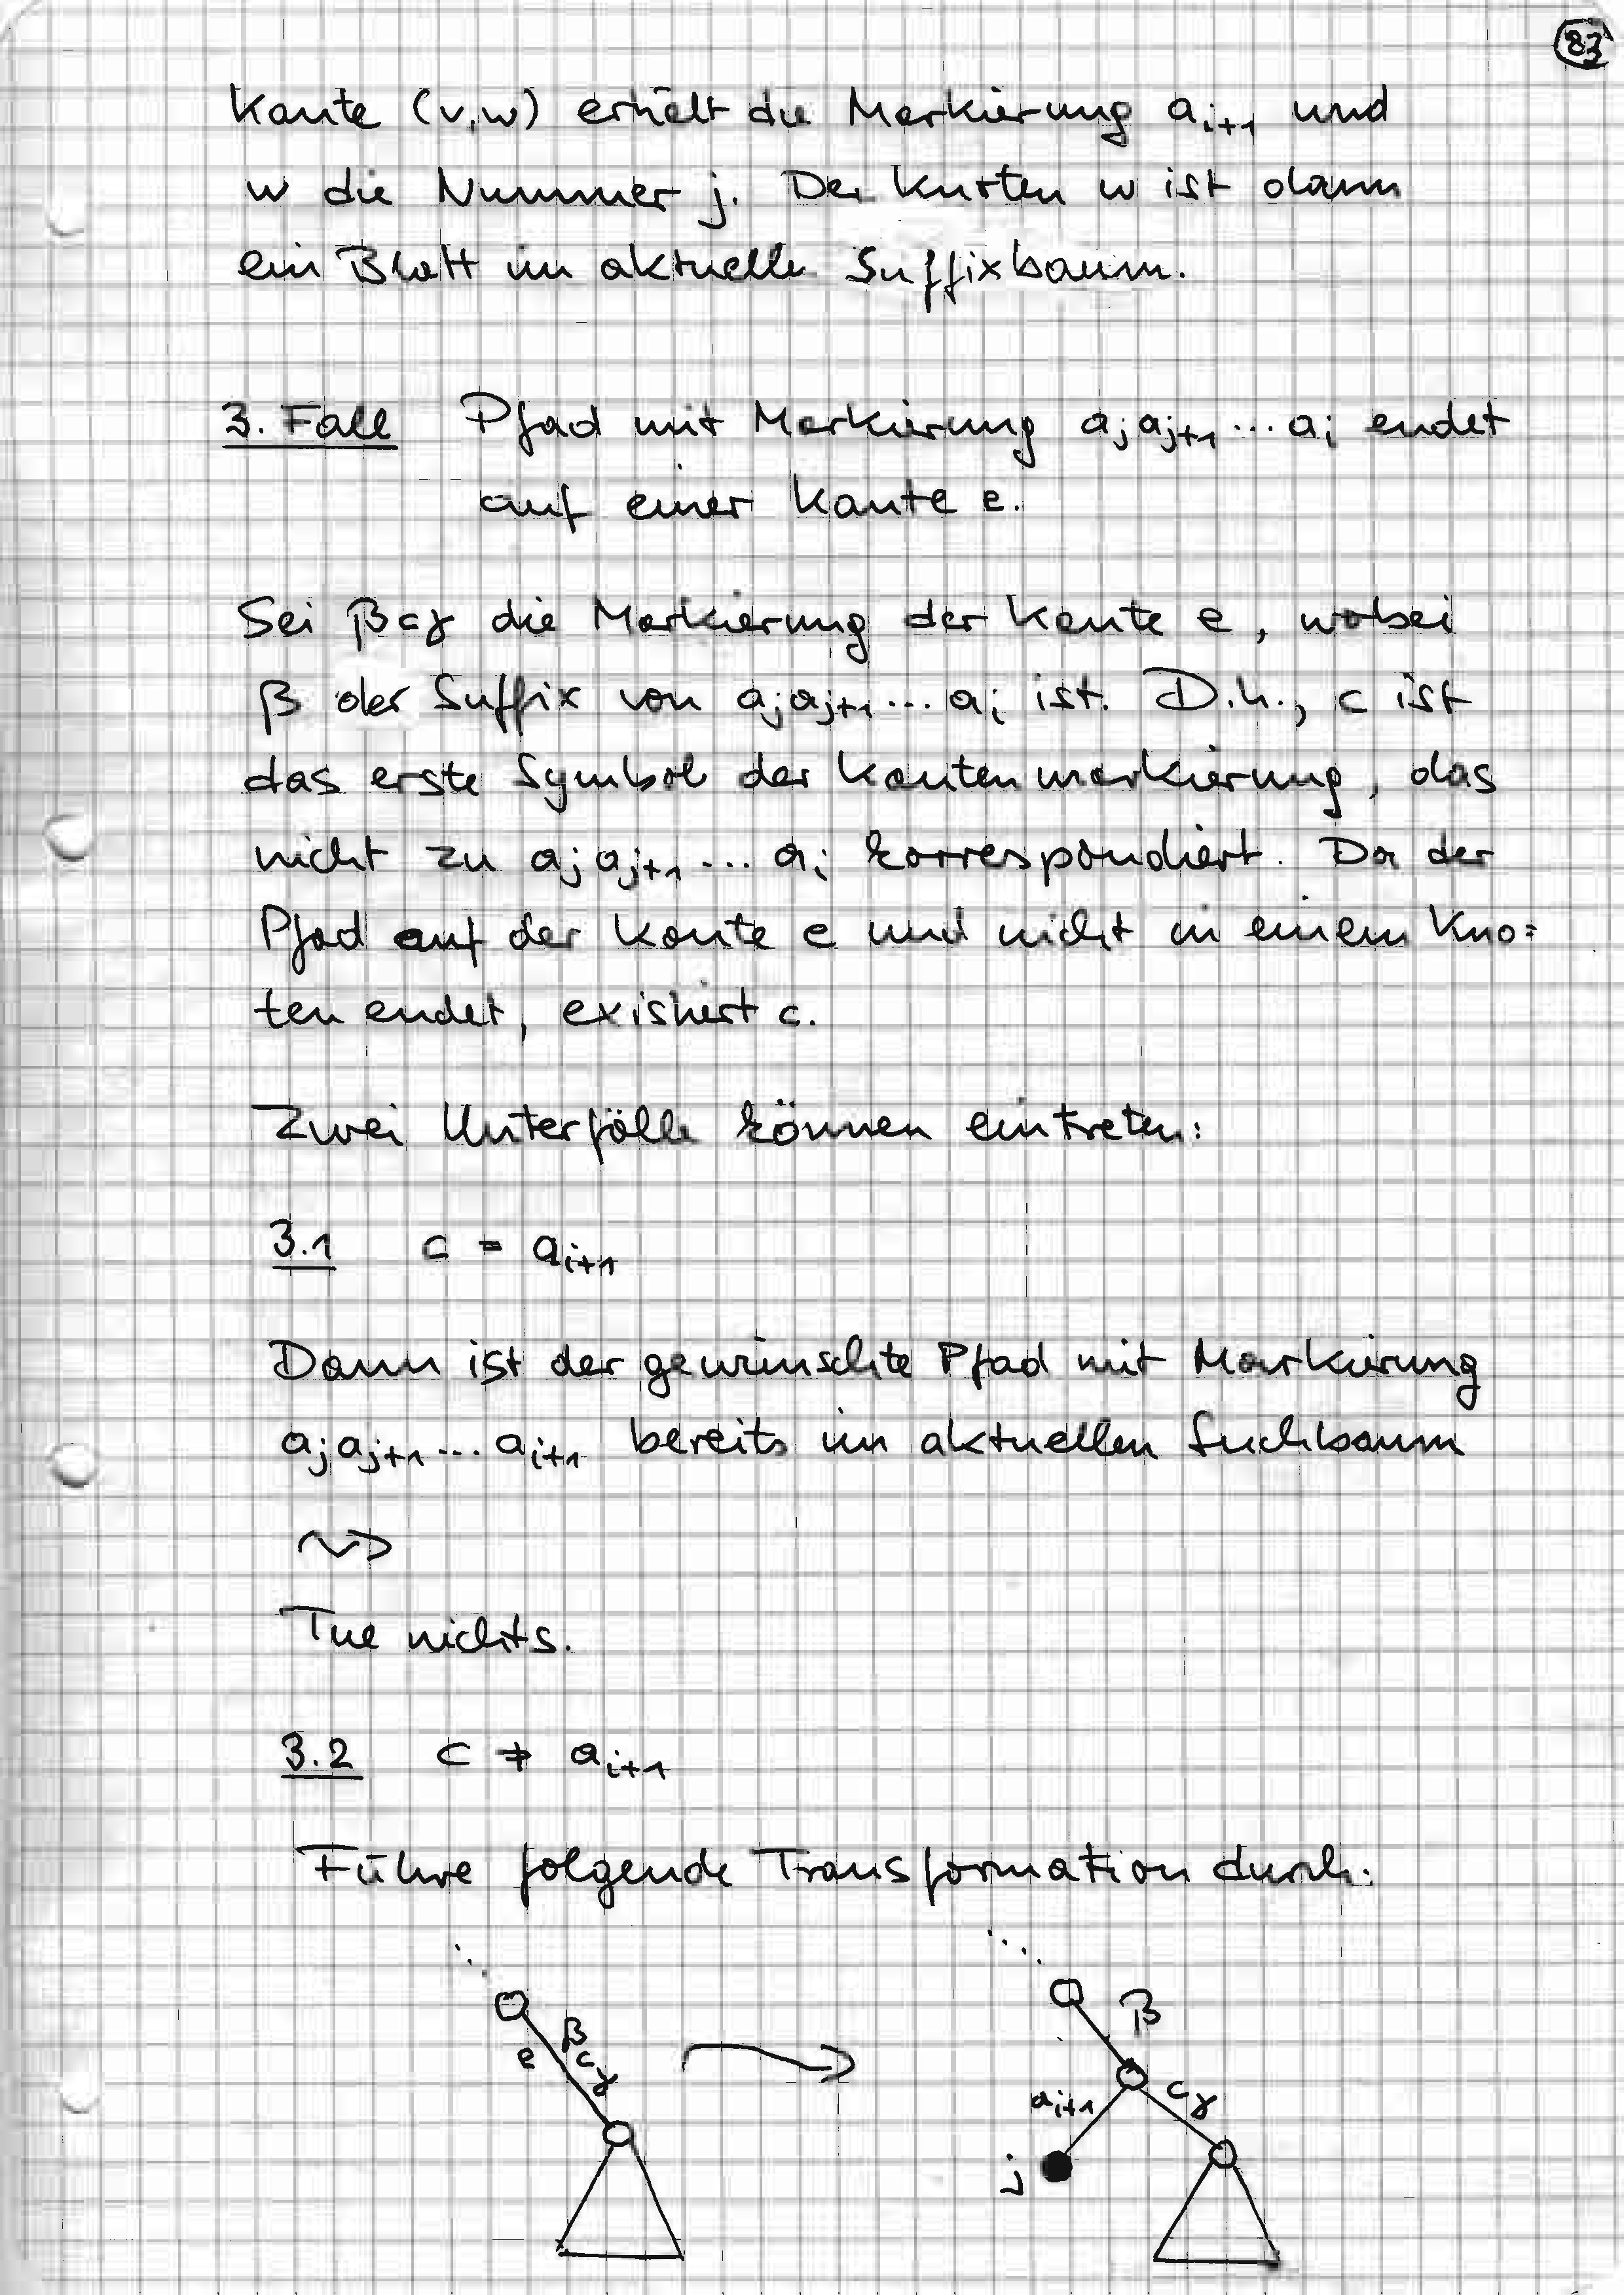 83
Kante (v,w) erhält die Markierung a_{i+1} und
w die Nummer j. Der Knoten w ist dann
ein Blatt im aktuelle Suffixbaum.
3. Fall Pfad mit Markierung a_j a_{j+1} ... a_i endet
auf einer Kante e.
Sei βcγ die Markierung der Kante e, wobei
β der Suffix von a_j a_{j+1} ... a_i ist. D.h., c ist
das erste Symbol der Kantenmarkierung, das
nicht zu a_j a_{j+1} ... a_i korrespondiert. Da der
Pfad auf der Kante e und nicht in einem Kno=
ten endet, existiert c.
Zwei Unterfälle können eintreten:
3.1 c = a_{i+1}
Dann ist der gewünschte Pfad mit Markierung
a_j a_{j+1} ... a_{i+1} bereits im aktuellen Suchbaum
⤳
Tue nichts.
3.2 c ≠ a_{i+1}
Führe folgende Transformation durch:
e βcγ
β
a_{i+1} cγ
j